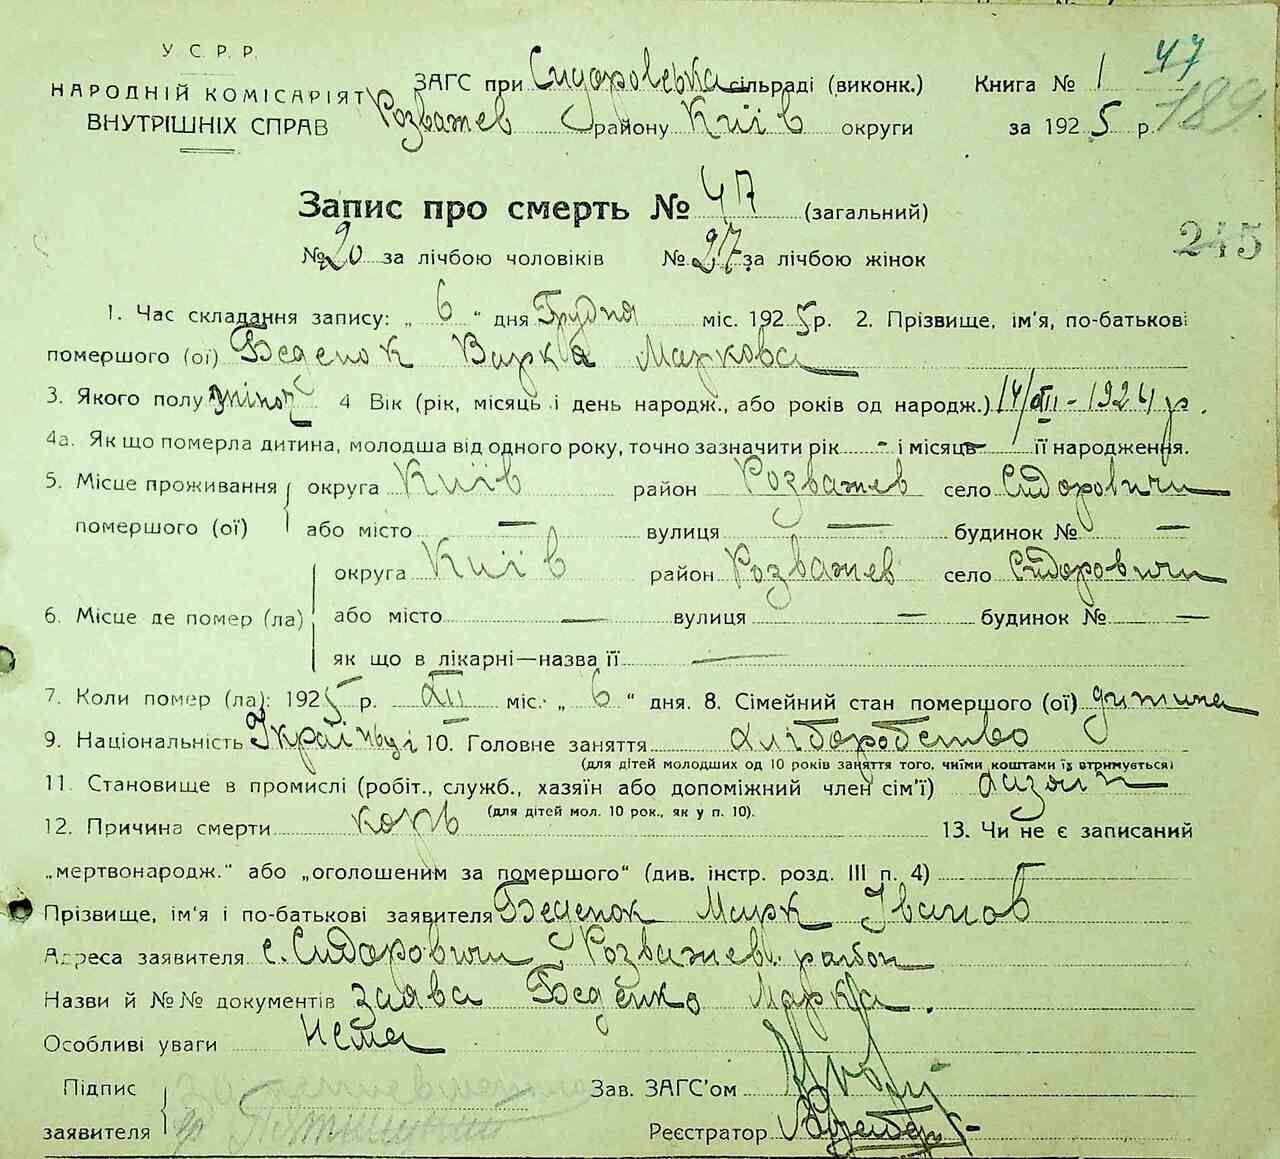 У С. Р. Р.
НАРОДНІЙ КОМІСАРІЯТ
ВНУТРІШНІХ СПРАВ
ЗАГС при Сидоровська сільраді (виконк.)
Розважев району Київ округи
Книга № 1
за 1925 р.
47
189
Запис про смерть № 47 (загальний)
№ 20 за лічбою чоловіків № 27 за лічбою жінок
245
1. Час складання запису: „ 6 “ дня Грудня міс. 1925 р. 2. Прізвище, ім'я, по-батькові
помершого (ої) Беденок Варка Маркова
3. Якого полу жіноч 4 Вік (рік, місяць і день народж., або років од народж.) 14/XII - 1924 р.
4а. Як що померла дитина, молодша від одного року, точно зазначити рік - і місяць - її народження.
5. Місце проживання помершого (ої) округа Київ район Розважев село Сидоровичи
або місто — вулиця — будинок № —
6. Місце де помер (ла) округа Київ район Розважев село Сидоровичи
або місто — вулиця — будинок № —
як що в лікарні—назва її —
7. Коли помер (ла): 1925 р. XII міс. „ 6 “ дня. 8. Сімейний стан помершого (ої) дитина
9. Національність Українці 10. Головне заняття хліборобство
(для дітей молодших од 10 років заняття того, чиїми коштами їх втримується)
11. Становище в промислі (робіт., служб., хазяїн або допоміжний член сім'ї) хазяїн
(для дітей мол. 10 рок., як у п. 10).
12. Причина смерти корь 13. Чи не є записаний
„мертвонародж.“ або „оголошеним за помершого“ (див. інстр. розд. III п. 4)
Прізвище, ім'я і по-батькові заявителя Беденок Марк Іванов
Адреса заявителя с. Сидоровичи Розважев. район
Назви й №№ документів заява Беденко Марка.
Особливі уваги Нема
Підпис
заявителя
Зав. ЗАГС'ом
Реєстратор